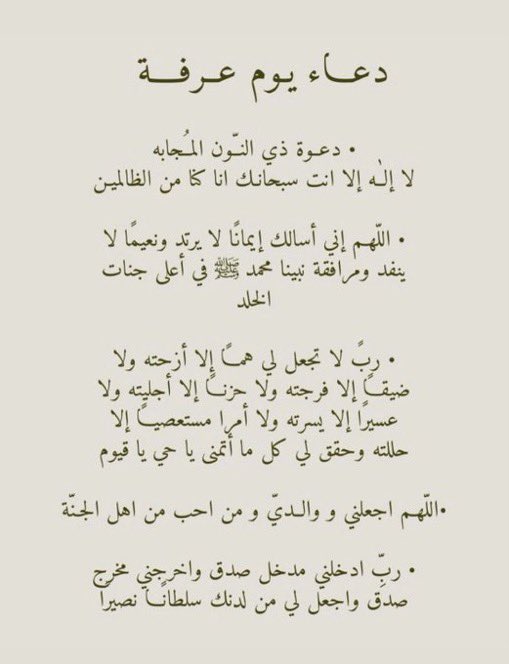 دعاء يوم عرفة
• دعوة ذي النّون المُجابه
لا إلٰه إلا انت سبحانك انا كنا من الظالمين
• اللّهم إني أسالك إيمانًا لا يرتد ونعيمًا لا
ينفد ومرافقة نبينا محمد ﷺ في أعلى جنات
الخلد
• ربً لا تجعل لي همـًا إلا أزحته ولا
ضيقـًا إلا فرجته ولا حزنـًا إلا أجليته ولا
عسيرًا إلا يسرته ولا أمرا مستعصيـًا إلا
حللته وحقق لي كل ما أتمنى يا حي يا قيوم
•اللّهم اجعلني و والديّ و من احب من اهل الجنّة
• ربِّ ادخلني مدخل صدق واخرجني مخرج
صدق واجعل لي من لدنك سلطانـًا نصيرًا